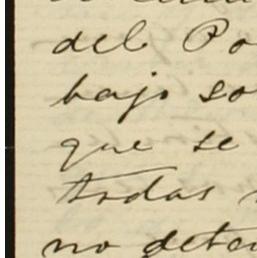 del Po
bajo so
que se
todas
no deten